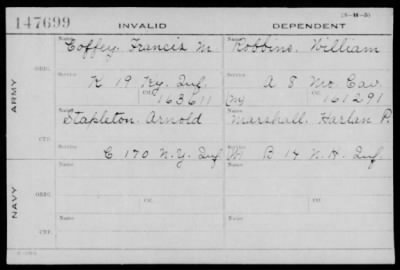 147699 INVALID DEPENDENT (3-M-5)
Name Coffey. Francis M. Name Robbins. William
ARMY
ORIG.
Service K 19 Ky. Inf. Service A 8 Mo. Cav.
Ctf. 163611 (M) Ctf. 161291
Name Stapleton. Arnold Name Marshall. Harlan P.
CTF.
Service C 170 N.Y. Inf Service (M) B 14 N.H. Inf.
NAVY
Name Name
ORIG.
Service Ctf. Service Ctf.
Name Name
CTF.
Service Service